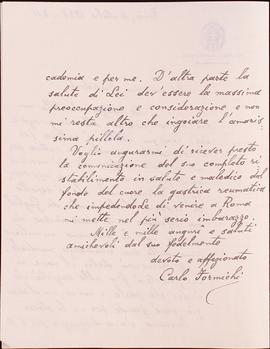 cademia e per me. D'altra parte la
salute di Lei dev'essere la massima
preoccupazione e considerazione e non
mi resta altro che ingoiare l'amaris-
sima pillola.
Voglio augurarmi di ricever presto
la comunicazione del suo completo ri-
stabilimento in salute e maledico dal
fondo del cuore la gastrica reumatica
che impedendoLe di venire a Roma
mi mette nel più serio imbarazzo.
Mille e mille auguri e saluti
amichevoli dal suo fedelmente
devoto e affezionato
Carlo Formichi